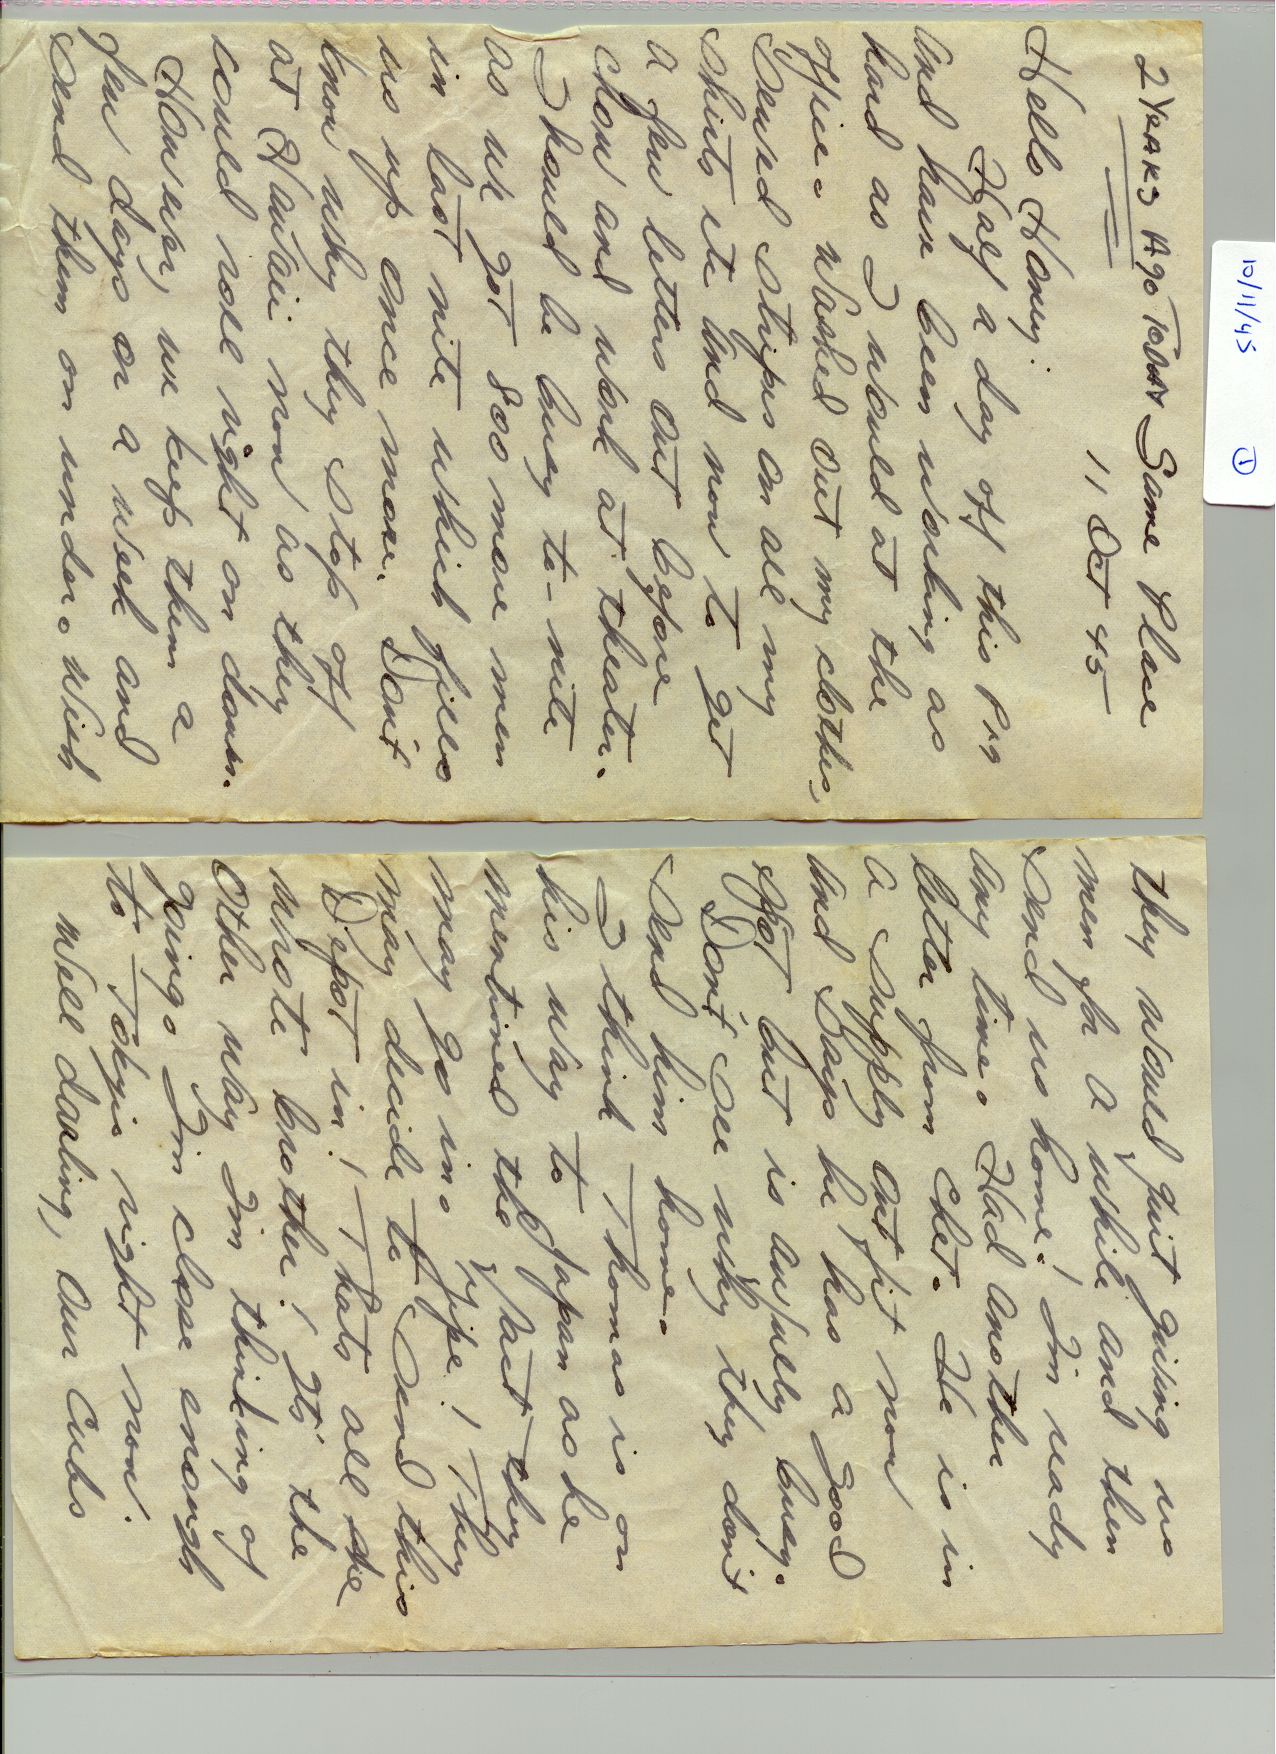 10/11/45 ①
2 Years Ago Today Same Place
11 Oct 45
Hello Honey:
Half a day off this P.M
and have been working as
hard as I would at the
office. Washed out my clothes,
sewed stripes on all my
shirts etc and now to get
a few letters out before
chow and work at theater.
I should be busy to-nite
as we got 800 more men
in last nite which fills
us up once more. Don't
know why they stop off
at Hawaii now as they
could role right on down.
However, we keep them a
few days or a week and
send them on under. Wish
they would quit giving us
men for a while and then
send us home! I'm ready
any time. Had another
letter from Chet. He is in
a supply outfit now
and says he has a good
spot but is awfully busy.
Don't see why they don't
send him home.
I think Thomas is on
his way to Japan as he
mentioned the fact they
may go in. Yipe! They
may decide to send this
Depot in! Thats all she
wrote brother! Its the
other way I'm thinking of
going. I'm close enough
to Tokyo right now.
Well darling, our Cubs